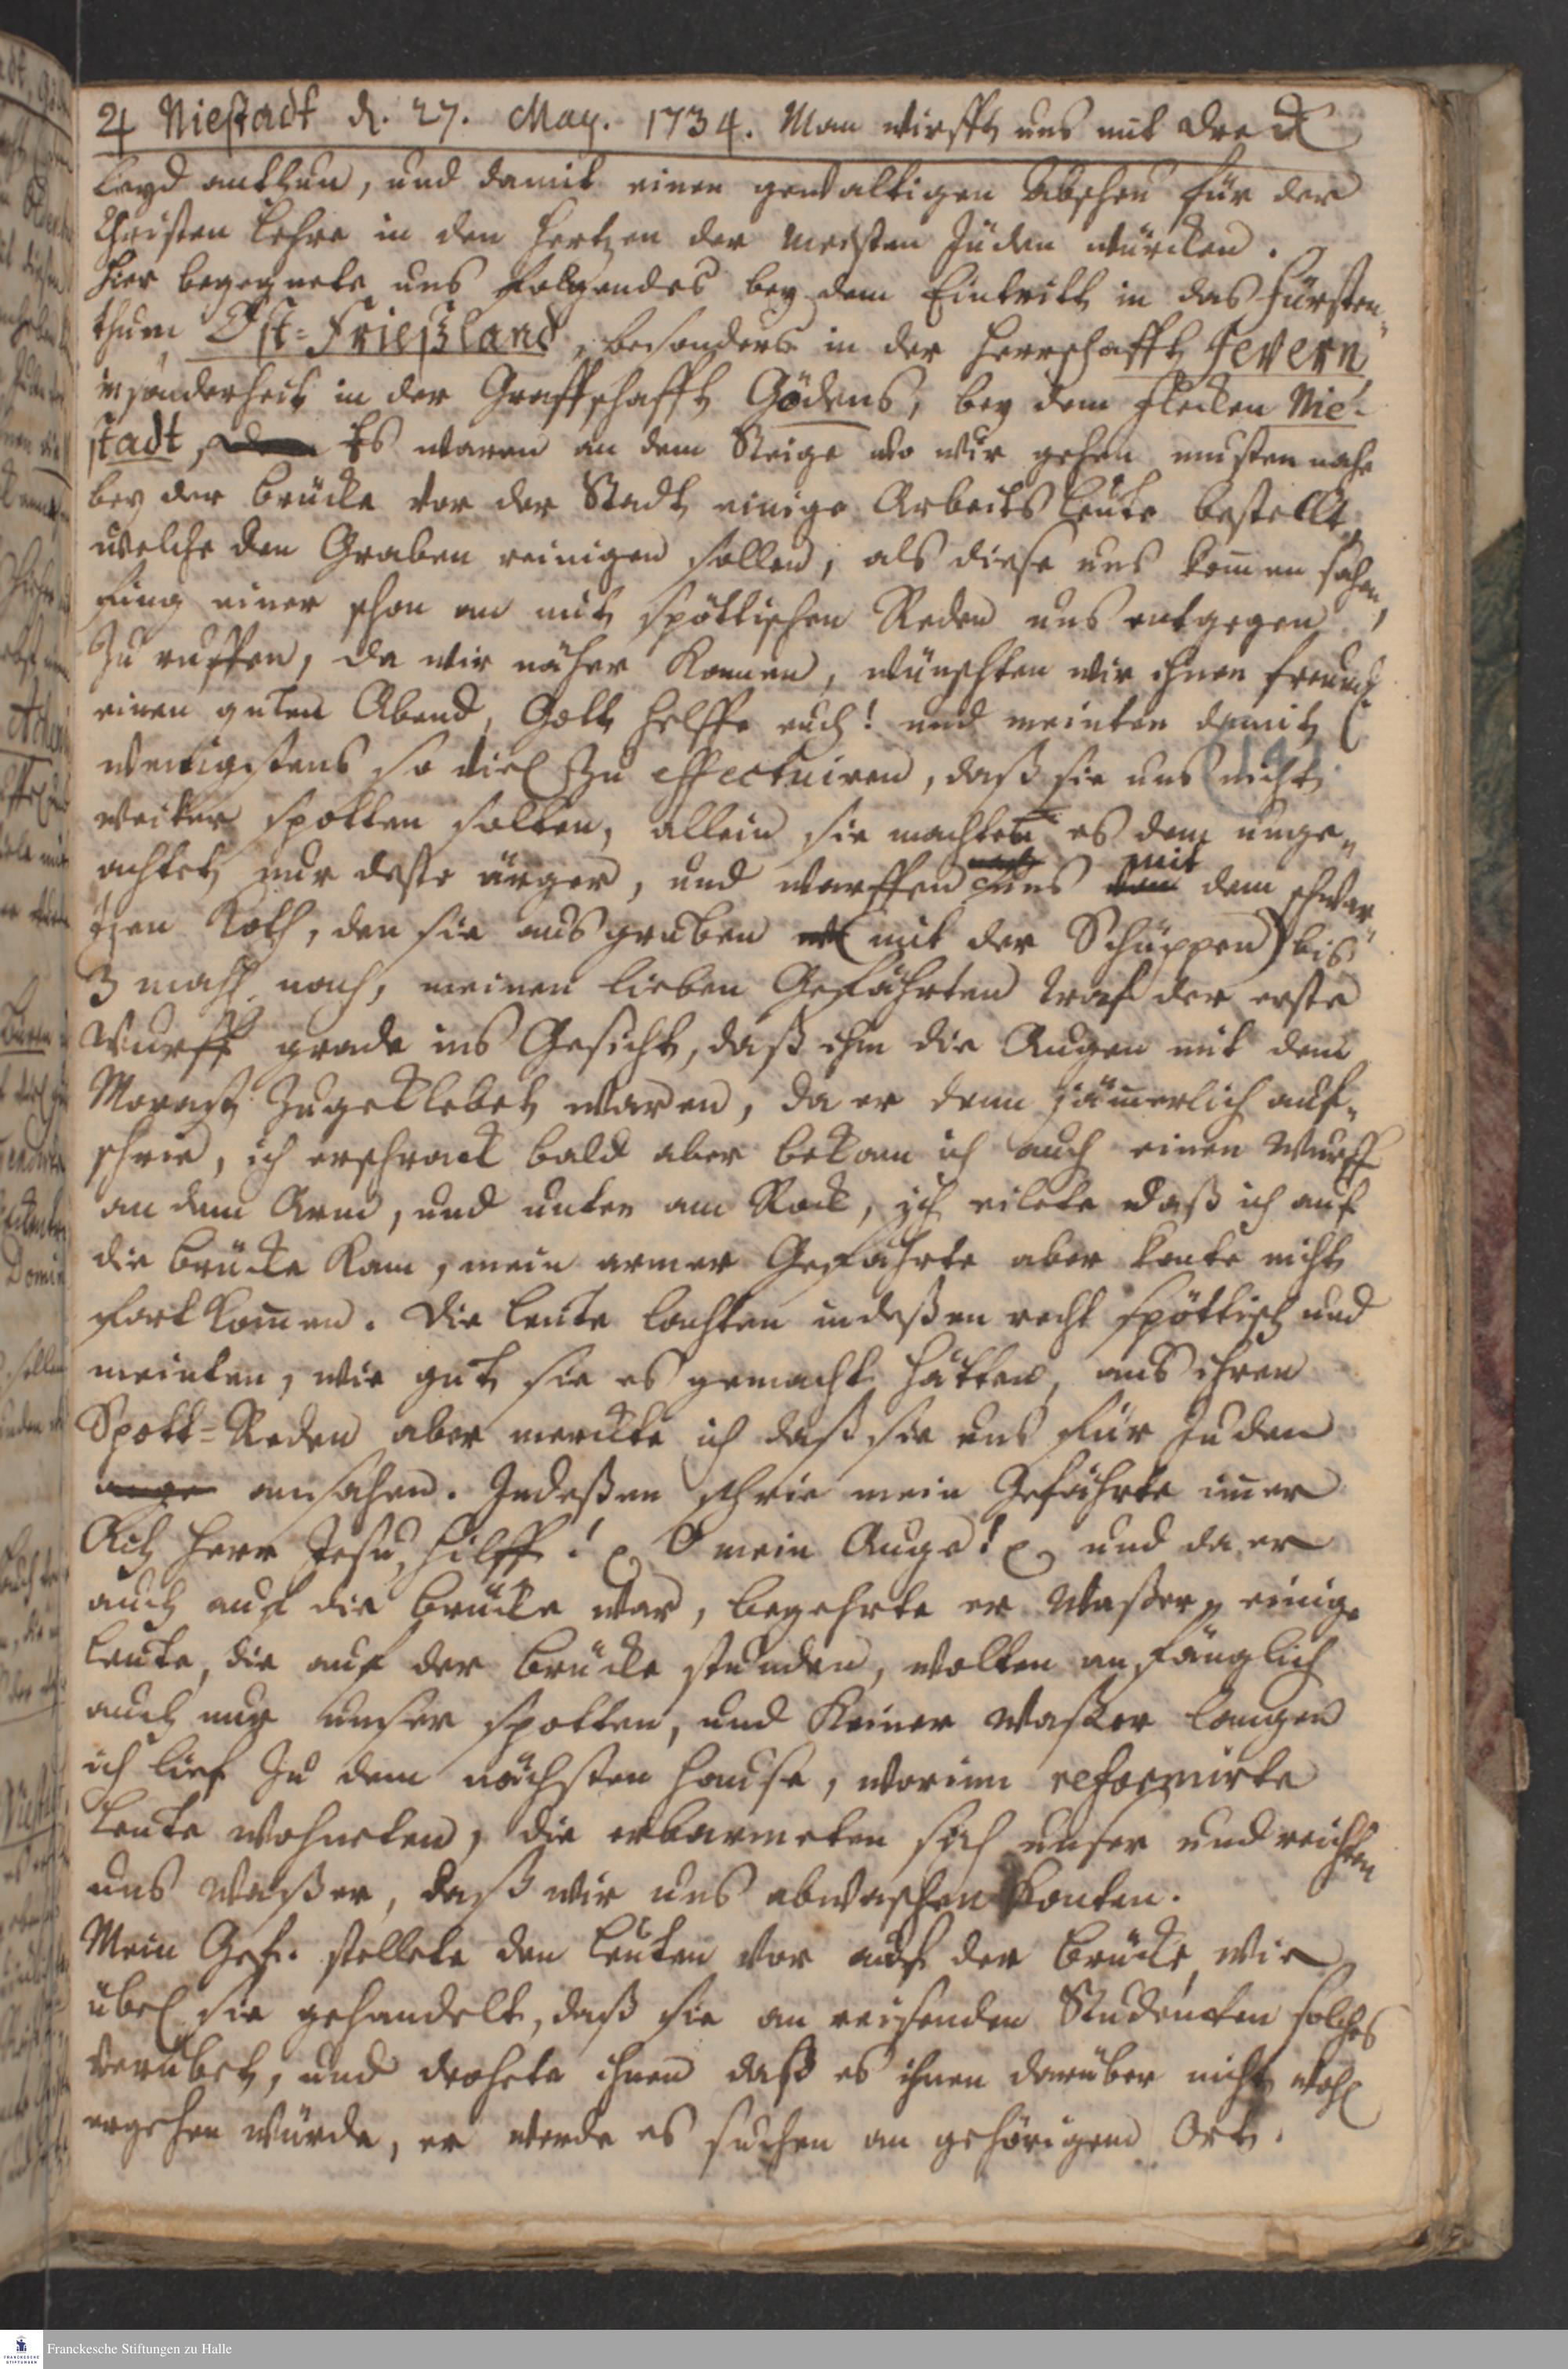 ♃ Niestadt d. 27. May. 1734. Man wirfft uns mit Dreck
Leyd anthun, und damit einen gewaltigen Abscheu für der
Christen Lehre in den Hertzen der meisten Jüden würcken.
Hier begegnete uns folgendes bey dem Eintritt in das Fürsten-
thum Ost-Frießland, besonders in der Herrschafft Jevern,
insonderheit in der Graffschafft Gödens, bey dem Flecken Nie-
stadt, Es waren an dem Steige wo wir gehen musten nahe
bey der Brücke vor der Stadt einige Arbeits Leute bestellt,
welche den Graben reinigen sollen, als diese uns kom̅en sahen,
fing einer schon an mit spöttischen Reden uns entgegen
zu ruffen, da wir näher kamen, wünschten wir ihnen freundl.
einen guten Abend, Gott helffe euch! und meinten damit
wenigstens so viel zu effectuiren, daß sie uns nicht
weiter spotten solten, allein sie machten es dem unge-
achtet nur desto ärger, und warffen uns mit dem schwar-
tzen Koth, den sie ausgruben mit der Schüppen bis
3 mahl nach, meinen lieben Gefährten traf der erste
Wurff grade ins Gesicht, daß ihm die Augen mit dem
Morast zugeklebet waren, da er denn jäm̅erlich auf-
schrie, ich erschrack bald aber bekam ich auch einen Wurff
an dem Arm, und unten am Rock, ich eilete daß ich auf
die Brücke kam, mein armer Gefährte aber konte nicht
fort kom̅en. Die Leute lachten indeßen recht spöttisch und
meinten, wie gut sie es gemacht hätten, aus ihren
Spott-Reden aber merckte ich daß sie uns für Juden
ange ansahen. Indeßen schrie mein Gefährte im̅er
Ach Herr Jesu, hilff! O mein Auge! und da er
auch auf die Brücke war, begehrte er Waßer, einige
Leute, die auf der Brücke stunden, wolten anfänglich
auch nur unser spotten, und keiner Waßer langen
ich lief zu dem nächsten Hause, worinn reformirte
Leute wohneten, die erbarmeten sich unser und reichten
uns Waßer, daß wir uns abwaschen konten.
Mein Gef. stellete den Leuten vor auf der Brücke, wie
übel sie gehandelt, daß sie an reisenden Studenten solches
verübet, und drohete ihnen daß es ihnen darüber nicht wohl
ergehen würde, er werde es suchen an gehörigem Ort.
Franckesche Stiftungen zu Halle